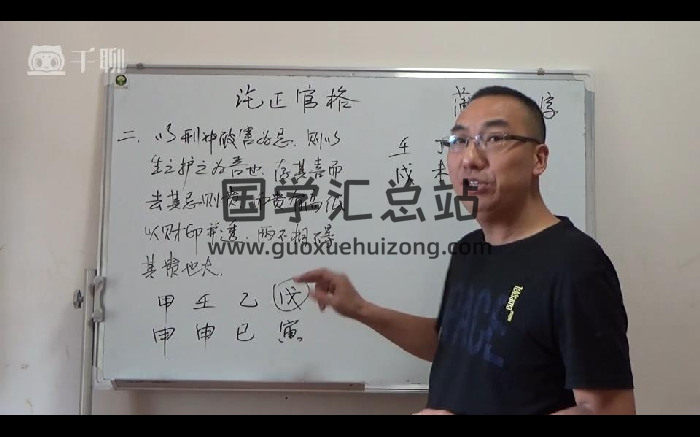 千聊
论正官格
二、以刑冲破害为忌，则以
生之护之为喜也，存其喜而
去其忌则贵，而贵有高低
以财印并透，两不相碍
其贵也大.
甲 壬 乙 戊
申 申 巳 寅
壬
戌 未
国学汇总站
www.guoxuehuizong.com